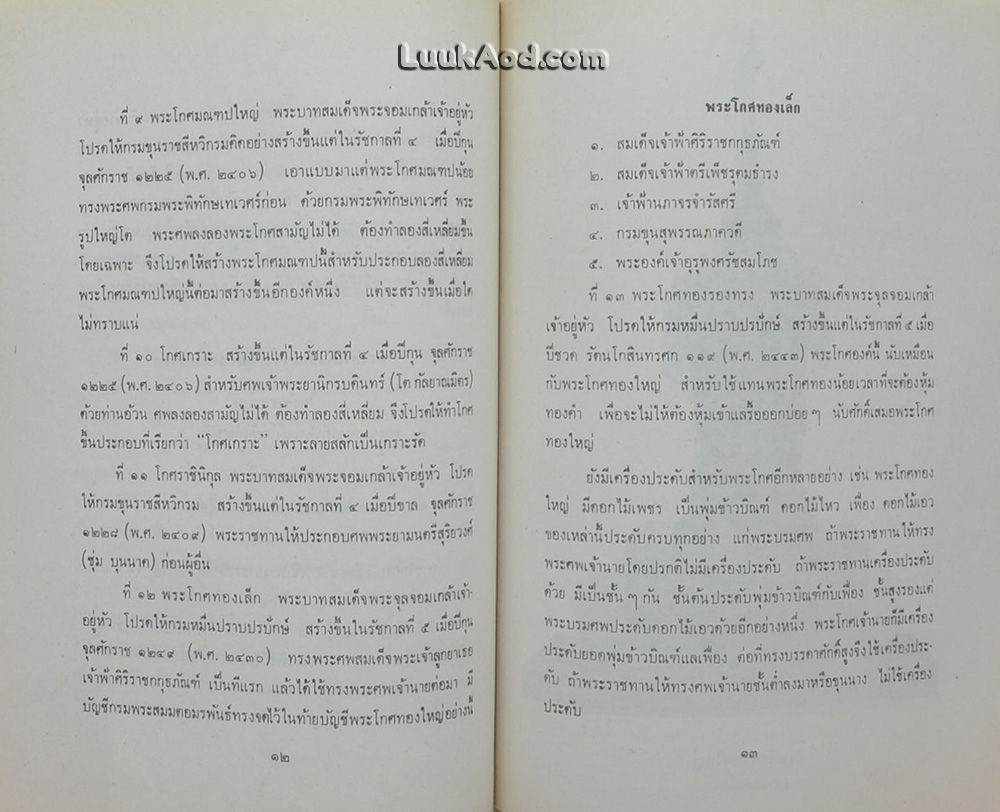 LuukAod.com
ที่ ๙ พระโกศมณฑปใหญ่ พระบาทสมเด็จพระจอมเกล้าเจ้าอยู่หัว
โปรดให้กรมขุนราชสีหวิกรมคิดอย่างสร้างขึ้นแต่ในรัชกาลที่ ๔ เมื่อปีกุน
จุลศักราช ๑๒๒๕ (พ.ศ. ๒๔๐๖) เอาแบบมาแต่พระโกศมณฑปน้อย
ทรงพระศพกรมพระพิทักษเทเวศร์ก่อน ด้วยกรมพระพิทักษเทเวศร์ พระ
รูปใหญ่โต พระศพลงลองพระโกศสามัญไม่ได้ ต้องทำลองสี่เหลี่ยมขึ้น
โดยเฉพาะ จึงโปรดให้สร้างพระโกศมณฑปนี้สำหรับประกอบลองสี่เหลี่ยม
พระโกศมณฑปใหญ่นี้ต่อมาสร้างขึ้นอีกองค์หนึ่ง แต่จะสร้างขึ้นเมื่อใด
ไม่ทราบแน่
ที่ ๑๐ โกศเกราะ สร้างขึ้นแต่ในรัชกาลที่ ๔ เมื่อปีกุน จุลศักราช
๑๒๒๕ (พ.ศ. ๒๔๐๖) สำหรับศพเจ้าพระยานิกรบดินทร์ (โต กัลยาณมิตร)
ด้วยท่านอ้วน ศพลงลองสามัญไม่ได้ ต้องทำลองสี่เหลี่ยม จึงโปรดให้ทำโกศ
ขึ้นประกอบที่เรียกว่า “โกศเกราะ” เพราะลายสลักเป็นเกราะรัด
ที่ ๑๑ โกศราชินิกุล พระบาทสมเด็จพระจอมเกล้าเจ้าอยู่หัว โปรด
ให้กรมขุนราชสีหวิกรม สร้างขึ้นแต่ในรัชกาลที่ ๔ เมื่อปีขาล จุลศักราช
๑๒๒๘ (พ.ศ. ๒๔๐๙) พระราชทานให้ประกอบศพพระยามนตรีสุริยวงศ์
(ชุ่ม บุนนาค) ก่อนผู้อื่น
ที่ ๑๒ พระโกศทองเล็ก พระบาทสมเด็จพระจุลจอมเกล้าเจ้า-
อยู่หัว โปรดให้กรมหมื่นปราบปรปักษ์ สร้างขึ้นในรัชกาลที่ ๕ เมื่อปีกุน
จุลศักราช ๑๒๔๙ (พ.ศ. ๒๔๓๐) ทรงพระศพสมเด็จพระเจ้าลูกยาเธอ
เจ้าฟ้าศิริราชกกุธภัณฑ์ เป็นทีแรก แล้วได้ใช้ทรงพระศพเจ้านายต่อมา มี
บัญชีกรมพระสมมตอมรพันธ์ทรงจดไว้ในท้ายบัญชีพระโกศทองใหญ่อย่างนี้
๑๒
พระโกศทองเล็ก
๑. สมเด็จเจ้าฟ้าศิริราชกกุธภัณฑ์
๒. สมเด็จเจ้าฟ้าตรีเพ็ชรุตมธำรง
๓. เจ้าฟ้านภาจรจำรัสศรี
๔. กรมขุนสุพรรณภาควดี
๕. พระองค์เจ้าอุรุพงศรัชสมโภช
ที่ ๑๓ พระโกศทองรองทรง พระบาทสมเด็จพระจุลจอมเกล้า
เจ้าอยู่หัว โปรดให้กรมหมื่นปราบปรปักษ์ สร้างขึ้นแต่ในรัชกาลที่ ๕ เมื่อ
ปีชวด รัตนโกสินทรศก ๑๑๙ (พ.ศ. ๒๔๔๓) พระโกศองค์นี้ นับเหมือน
กับพระโกศทองใหญ่ สำหรับใช้แทนพระโกศทองน้อยเวลาที่จะต้องหุ้ม
ทองคำ เพื่อจะไม่ให้ต้องหุ้มเข้าแลรื้อออกบ่อย ๆ นับศักดิ์เสมอพระโกศ
ทองใหญ่
ยังมีเครื่องประดับสำหรับพระโกศอีกหลายอย่าง เช่น พระโกศทอง
ใหญ่ มีดอกไม้เพชร เป็นพุ่มข้าวบิณฑ์ ดอกไม้ไหว เฟื่อง ดอกไม้เอว
ของเหล่านี้ประดับครบทุกอย่าง แก่พระบรมศพ ถ้าพระราชทานให้ทรง
พระศพเจ้านายโดยปรกติไม่มีเครื่องประดับ ถ้าพระราชทานเครื่องประดับ
ด้วย มีเป็นชั้น ๆ กัน ชั้นต้นประดับพุ่มข้าวบิณฑ์กับเฟื่อง ชั้นสูงรองแต่
พระบรมศพประดับดอกไม้เอวด้วยอีกอย่างหนึ่ง พระโกศเจ้านายก็มีเครื่อง
ประดับยอดพุ่มข้าวบิณฑ์แลเฟื่อง ต่อที่ทรงบรรดาศักดิ์สูงจึงใช้เครื่องประ-
ดับ ถ้าพระราชทานให้ทรงศพเจ้านายชั้นต่ำลงมาหรือขุนนาง ไม่ใช้เครื่อง
ประดับ
๑๓